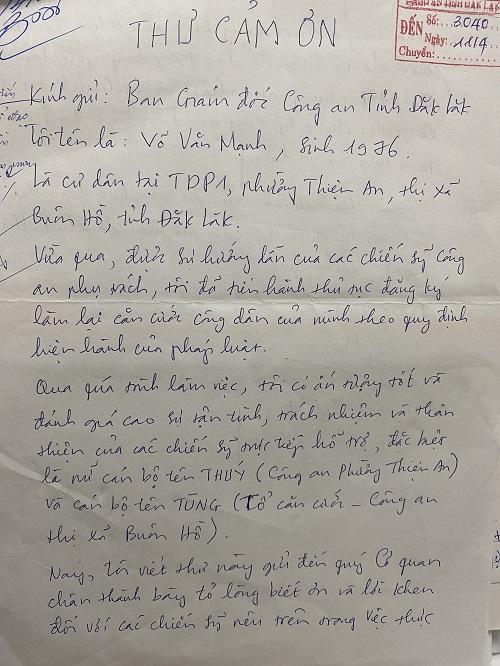 THƯ CẢM ƠN
CÔNG AN TỈNH ĐẮK LẮK
ĐẾN Số: 3040
Ngày: 11/4
Chuyển:
Kính gửi: Ban Giám đốc Công an Tỉnh Đắk Lắk
Tôi tên là: Võ Văn Mạnh, sinh 1976.
Là cư dân tại TDP1, phường Thiện An, thị xã
Buôn Hồ, tỉnh Đắk Lắk.
Vừa qua, được sự hướng dẫn của các chiến sỹ công
an phụ trách, tôi đã tiến hành thủ tục đăng ký
làm lại căn cước công dân của mình theo quy định
hiện hành của pháp luật.
Qua quá trình làm việc, tôi có ấn tượng tốt và
đánh giá cao sự tận tình, trách nhiệm và thân
thiện của các chiến sỹ trực tiếp hỗ trợ, đặc biệt
là nữ cán bộ tên THUÝ (Công an Phường Thiện An)
và cán bộ tên TÙNG (Tổ căn cước - Công an
thị xã Buôn Hồ).
Nay, tôi viết thư này gửi đến quý Cơ quan
chân thành bày tỏ lòng biết ơn và lời khen
đối với các chiến sỹ nêu trên trong việc thực